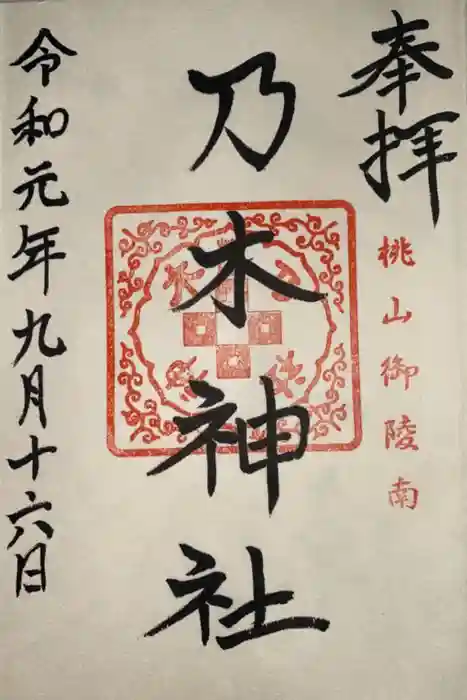 奉拝
桃山御陵南
乃木神社
令和元年九月十六日